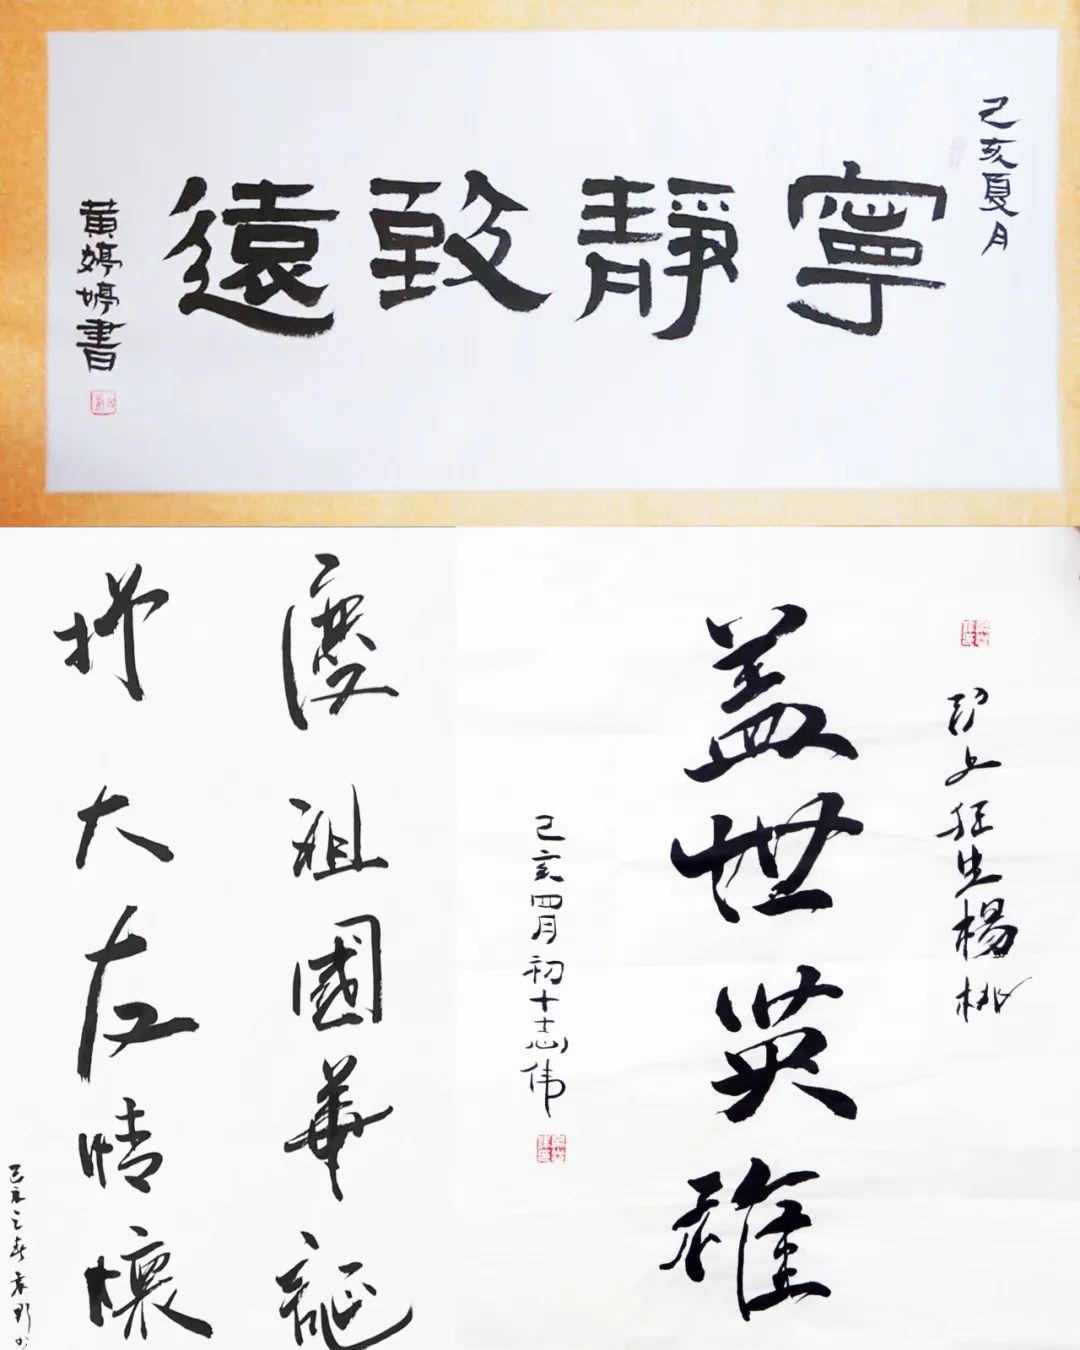 己亥夏月
寧靜致遠
黄婷婷書
慶祖國華誕
抒大友情懷
己亥之春
狂生楊桃
盖世英雄
己亥四月初十志伟